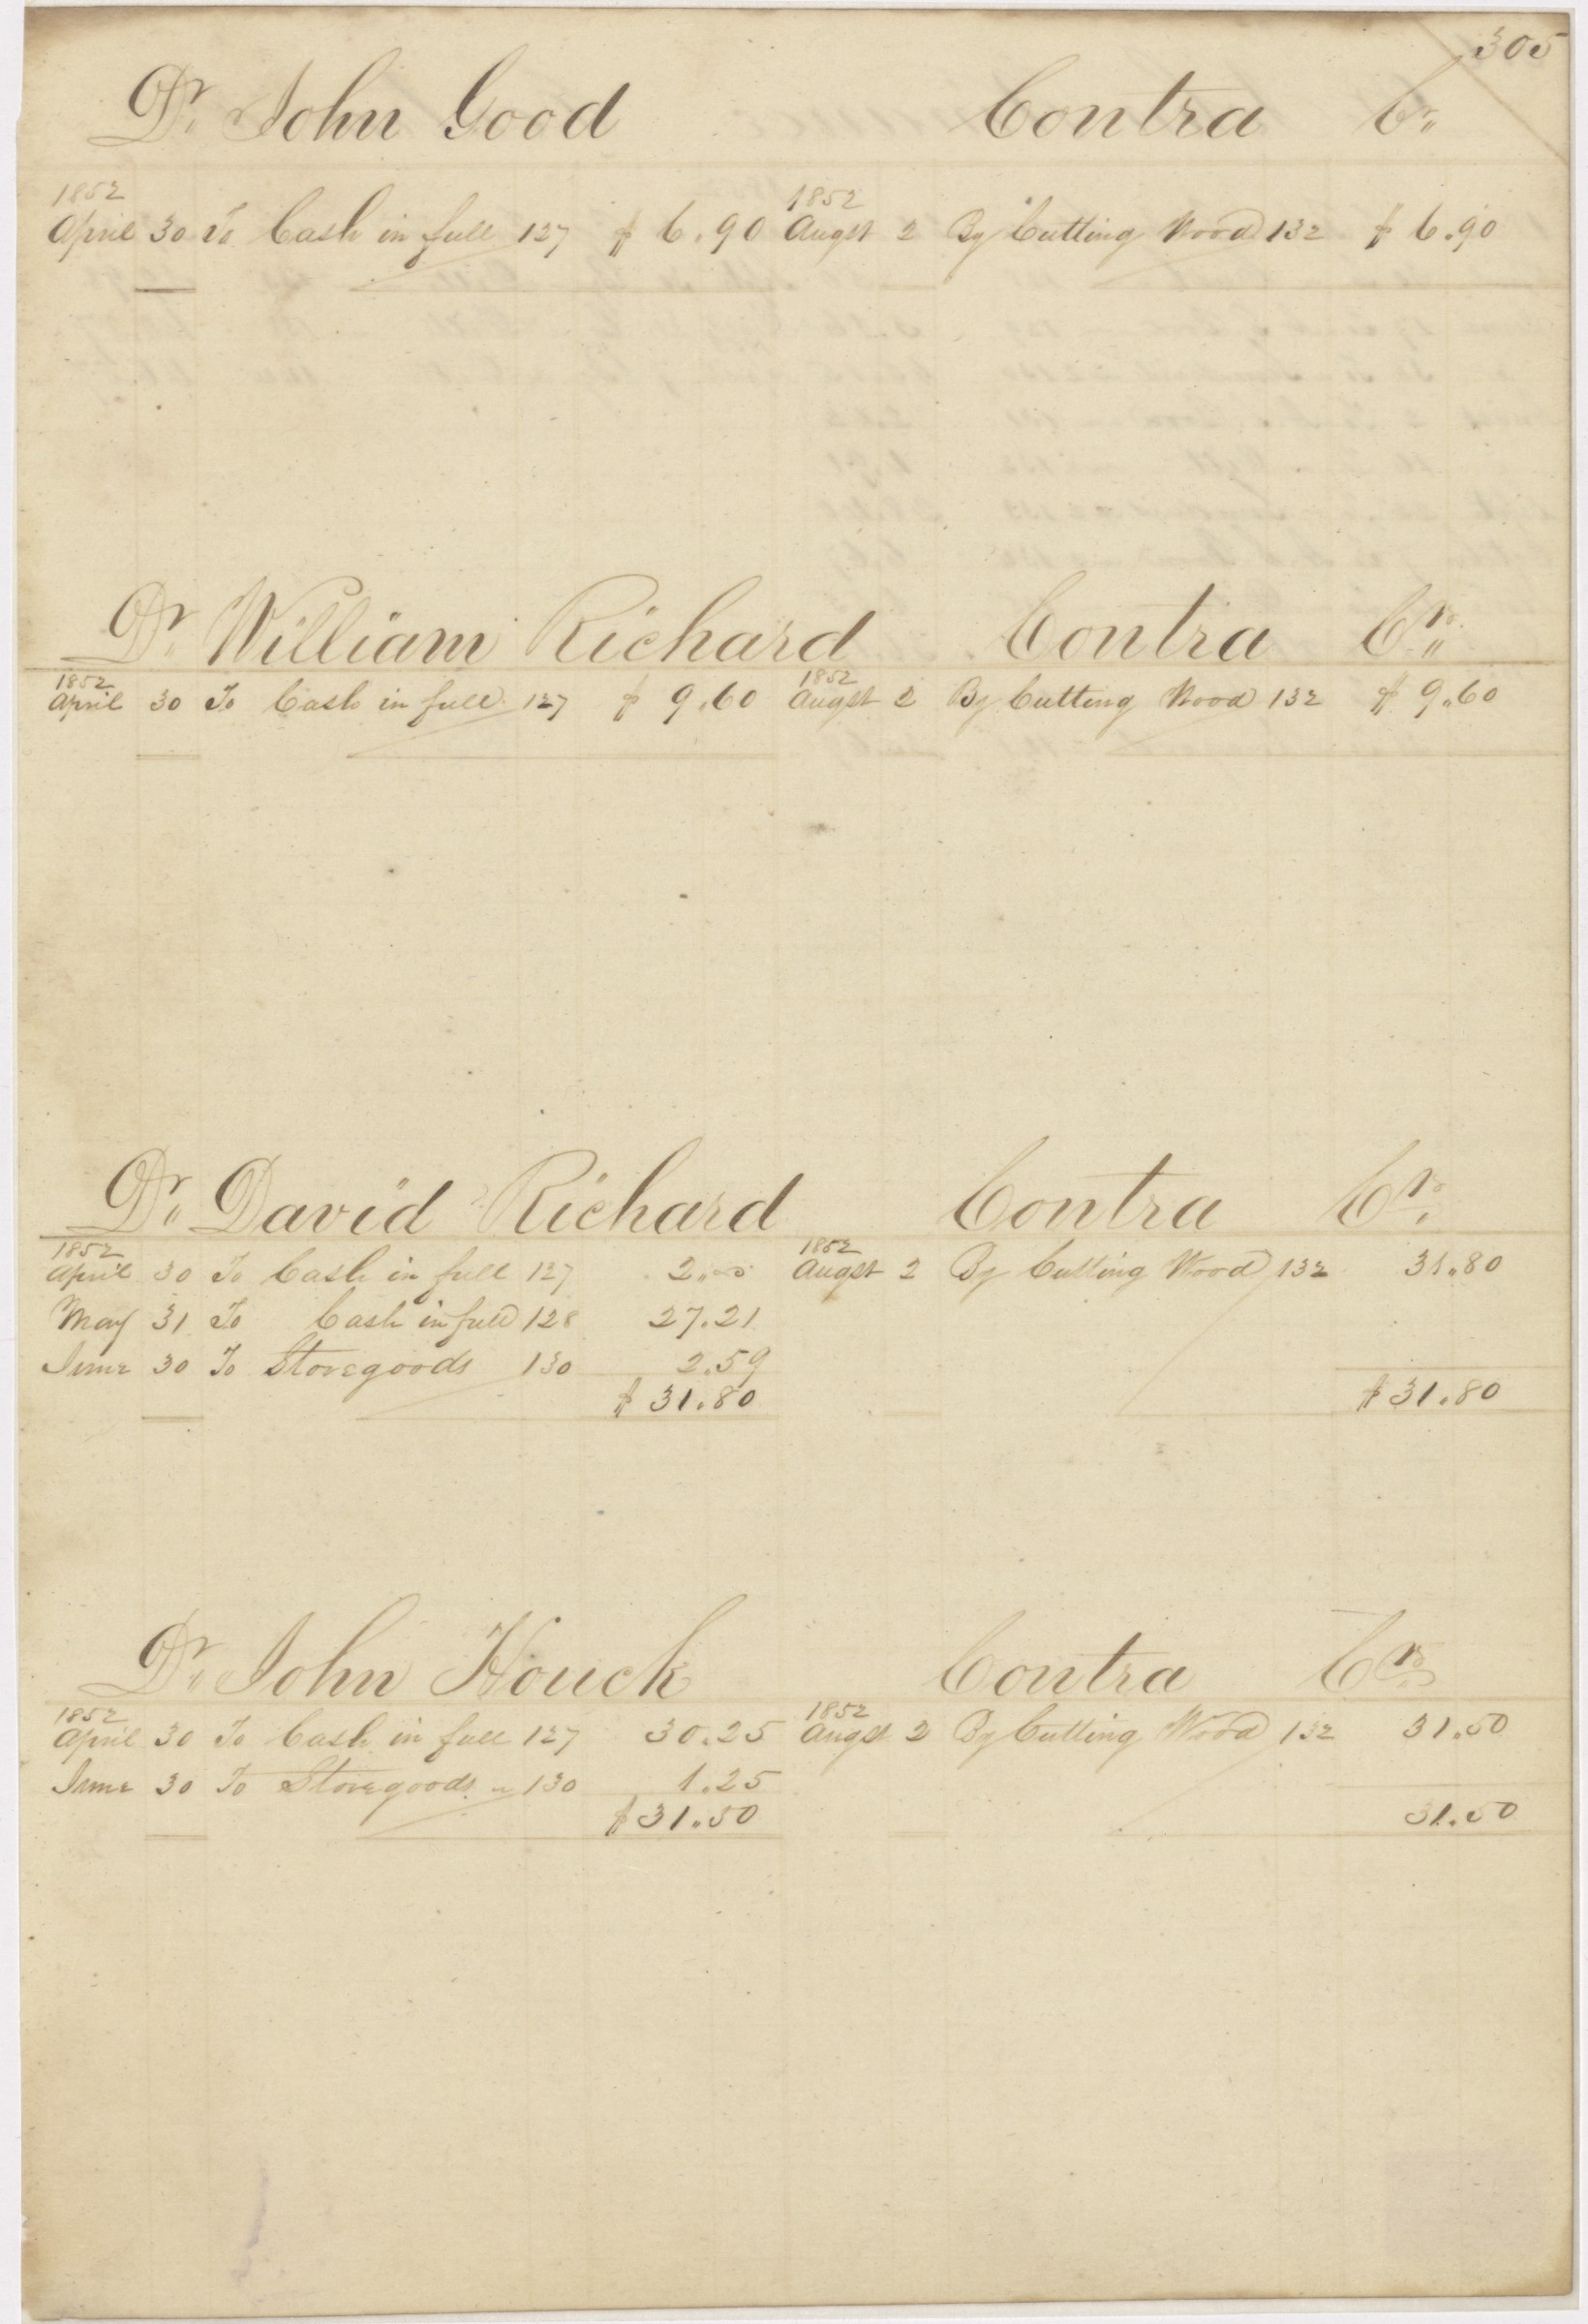 305
Dr. John Good Contra Cr.
1852 1852
April 30 To Cash in full 127 $ 6.90 Augst 2 By Cutting Wood 132 $ 6.90
Dr. William Richard Contra Cr.
1852 1852
April 30 To Cash in full 127 $ 9.60 Augst 2 By Cutting Wood 132 $ 9.60
Dr. David Richard Contra Cr.
1852 1852
April 30 To Cash in full 127 2.00 Augst 2 By Cutting Wood 132 31.80
May 31 To Cash in full 128 27.21
June 30 To Storegoods 130 2.59
$ 31.80 $ 31.80
Dr. John Houck Contra Cr.
1852 1852
April 30 To Cash in full 127 30.25 Augst 2 By Cutting Wood 132 31.50
June 30 To Storegoods 130 1.25
$ 31.50 31.50